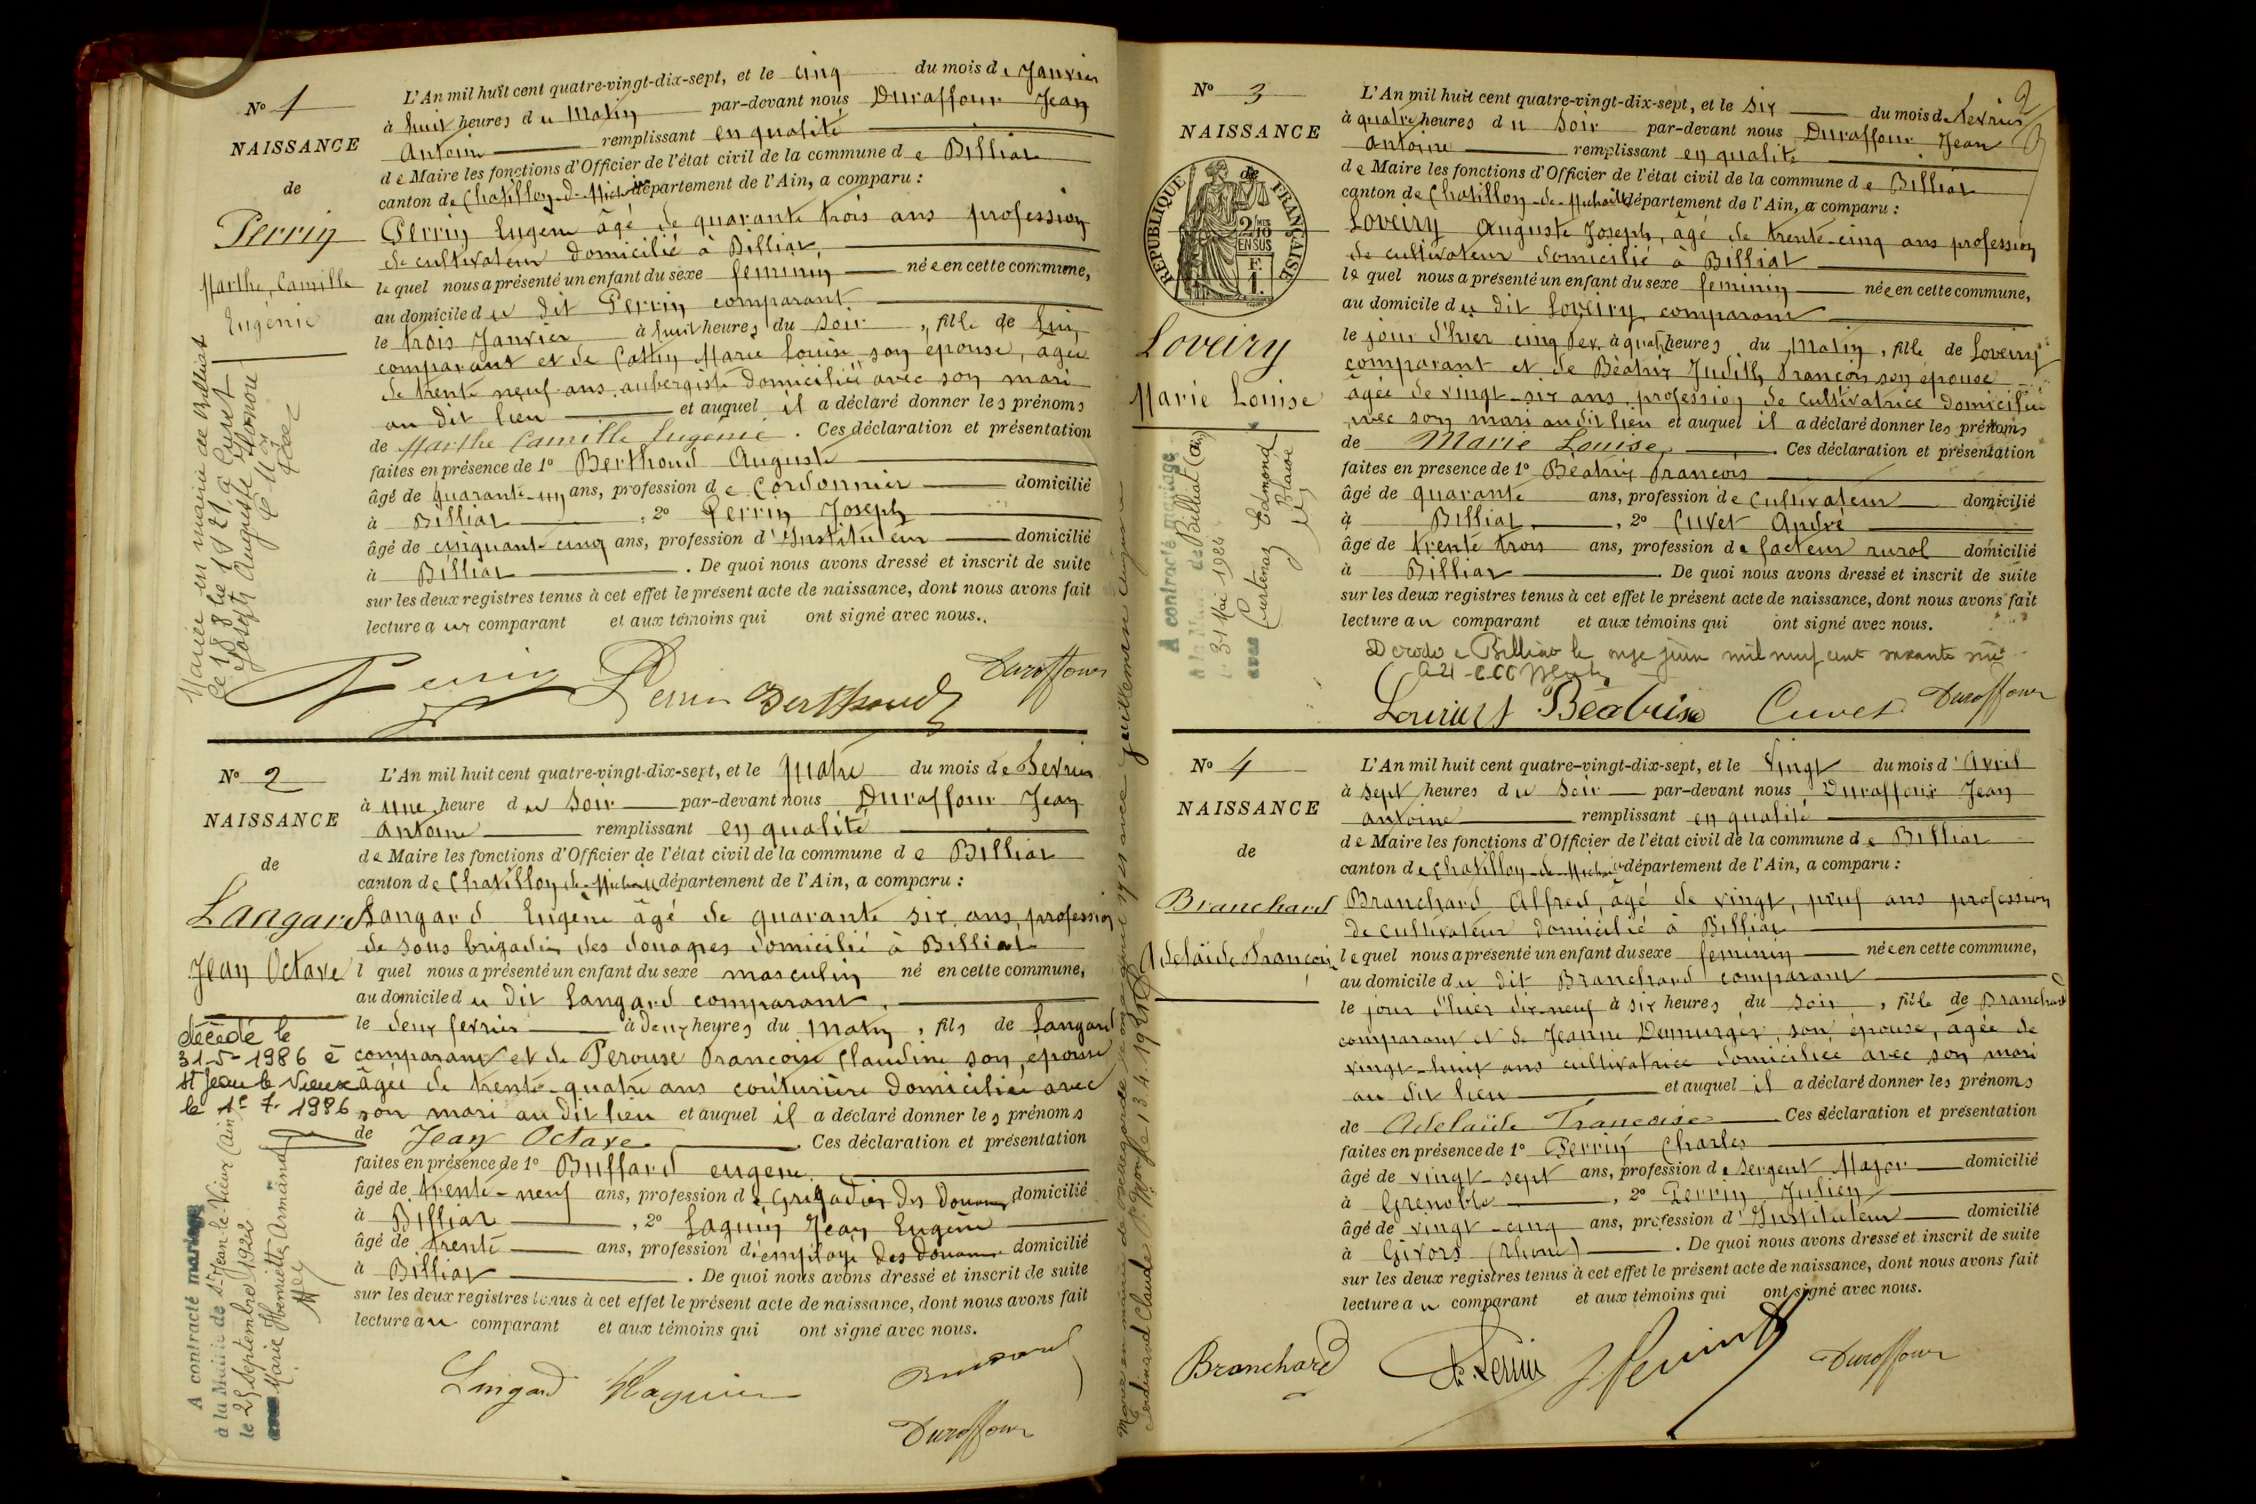 N° 1
NAISSANCE
de
Perrin
Marthe, Camille
Eugénie
Mariée en mairie de Billiat
L'An mil huit cent quatre-vingt-dix-sept, et le cinq du mois de Janvier
à huit heures du Matin par-devant nous Duraffour Jean
Antoine remplissant en qualité
de Maire les fonctions d'Officier de l'état civil de la commune de Billiat
canton de Chatillon-de-Michaille département de l'Ain, a comparu :
Perrin Eugène âgé de quarante trois ans profession
de cultivateur domicilié à Billiat
lequel nous a présenté un enfant du sexe feminin née en cette commune,
au domicile du dit Perrin comparant
le trois Janvier à huit heures du soir, fille de lui
comparant et de Cottin Marie Louise son épouse, âgée
de trente neuf ans aubergiste domiciliée avec son mari
au dit lieu et auquel il a déclaré donner les prénoms
de Marthe Camille Eugénie. Ces déclaration et présentation
faites en présence de 1° Berthoud Auguste
âgé de quarante-un ans, profession de Cordonnier domicilié
à Billiat, 2° Perrin Joseph
âgé de cinquante-cinq ans, profession d'Instituteur domicilié
à Billiat. De quoi nous avons dressé et inscrit de suite
sur les deux registres tenus à cet effet le présent acte de naissance, dont nous avons fait
lecture au comparant et aux témoins qui ont signé avec nous.
Perrin Perrin Berthoud Duraffour
N° 2
NAISSANCE
de
Langard
Jean Octave
décédé le
31-5-1986 à
St Jean le Vieux
le 1er 7. 1986
A contracté mariage
à la Mairie de St Jean-le-Vieux (Ain)
le 25 Septembre 1922
avec Marie Henriette Armand
L'An mil huit cent quatre-vingt-dix-sept, et le quatre du mois de Fevrier
à une heure du soir par-devant nous Duraffour Jean
Antoine remplissant en qualité
de Maire les fonctions d'Officier de l'état civil de la commune de Billiat
canton de Chatillon-de-Michaille département de l'Ain, a comparu :
Langard Eugène âgé de quarante six ans, profession
de sous brigadier des douanes domicilié à Billiat
l quel nous a présenté un enfant du sexe masculin né en cette commune,
au domicile du dit Langard comparant.
le deux fevrier à deux heures du matin, fils de Langard
comparant et de Perouse Françoise Claudine son épouse
âgée de trente-quatre ans couturière domiciliée avec
son mari au dit lieu et auquel il a déclaré donner les prénoms
de Jean Octave. Ces déclaration et présentation
faites en présence de 1° Buffard eugene
âgé de trente-neuf ans, profession de Brigadier des Douanes domicilié
à Billiat, 2° Laguin Jean Eugène
âgé de trente ans, profession d'employé des Douanes domicilié
à Billiat. De quoi nous avons dressé et inscrit de suite
sur les deux registres tenus à cet effet le présent acte de naissance, dont nous avons fait
lecture au comparant et aux témoins qui ont signé avec nous.
Langard Laguin
Duraffour
2
N° 3
NAISSANCE
RÉPUBLIQUE FRANÇAISE
2/10 EN SUS
Loveiry
Marie Louise
A contracté mariage
à la Mairie de Billiat (Ain)
avec
L'An mil huit cent quatre-vingt-dix-sept, et le six du mois de Fevrier
à quatre heures du soir par-devant nous Duraffour Jean
Antoine remplissant en qualité
de Maire les fonctions d'Officier de l'état civil de la commune de Billiat
canton de Chatillon-de-Michaille département de l'Ain, a comparu :
Loveiry Auguste Joseph, âgé de trente-cinq ans profession
de cultivateur domicilié à Billiat
lequel nous a présenté un enfant du sexe feminin née en cette commune,
au domicile du dit Loveiry comparant
le jour d'hier cinq fev. à quatre heures du Matin, fille de Loveiry
comparant et de Béatrix Judith François son épouse
âgée de vingt-six ans profession de cultivatrice domiciliée
avec son mari au dit lieu et auquel il a déclaré donner les prénoms
de Marie Louise. Ces déclaration et présentation
faites en présence de 1° Béatrix François
âgé de quarante ans, profession de cultivateur domicilié
à Billiat, 2° Cuvet André
âgé de trente trois ans, profession de facteur rural domicilié
à Billiat. De quoi nous avons dressé et inscrit de suite
sur les deux registres tenus à cet effet le présent acte de naissance, dont nous avons fait
lecture au comparant et aux témoins qui ont signé avec nous.
Billiat le onze juin mil neuf cent soixante
Cuvet Duraffour
N° 4
NAISSANCE
de
Branchard
Adelaïde Françoise
L'An mil huit cent quatre-vingt-dix-sept, et le Vingt du mois d'Avril
à sept heures du soir par-devant nous Duraffour Jean
Antoine remplissant en qualité
de Maire les fonctions d'Officier de l'état civil de la commune de Billiat
canton de Chatillon-de-Michaille département de l'Ain, a comparu :
Branchard Alfred, âgé de vingt, neuf ans profession
de cultivateur domicilié à Billiat
lequel nous a présenté un enfant du sexe feminin née en cette commune,
au domicile du dit Branchard comparant
le jour d'hier dix-neuf à six heures du soir, fille de Branchard
comparant et de Jeanne Demurger son épouse, âgée de
vingt-huit ans cultivatrice domiciliée avec son mari
au dit lieu et auquel il a déclaré donner les prénoms
de Adelaïde Françoise Ces déclaration et présentation
faites en présence de 1° Perrin Charles
âgé de vingt-sept ans, profession de sergent Major domicilié
à Grenoble, 2° Perrin Julien
âgé de vingt-cinq ans, profession d'Instituteur domicilié
à Givors (Rhone). De quoi nous avons dressé et inscrit de suite
sur les deux registres tenus à cet effet le présent acte de naissance, dont nous avons fait
lecture au comparant et aux témoins qui ont signé avec nous.
Branchard Perrin J. Perrin Duraffour